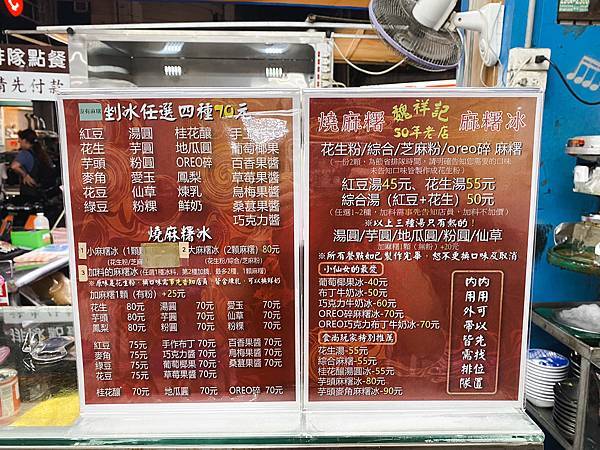 排隊點餐
請先付款
剉冰任選四種70元
紅豆 湯圓 桂花釀 手工
花生 芋圓 地瓜圓 葡萄椰果
芋頭 粉圓 OREO碎 百香果醬
麥角 愛玉 鳳梨 草莓果醬
花豆 仙草 煉乳 烏梅果醬
綠豆 粉粿 鮮奶 桑葚果醬
巧克力醬
燒麻糬冰
小麻糬冰(1顆 大麻糬冰(2顆麻糬)80元
(花生粉/芝 (花生粉/綜合/芝麻粉)
加料的麻糬冰(任選1種冰料,第2種加購,最多2種,1顆麻糬)
加麻糬1顆(有粉)+25元
花生 80元 湯圓 70元 愛玉 70元
芋頭 80元 芋圓 70元 仙草 70元
鳳梨 80元 粉圓 70元 粉粿 70元
紅豆 75元 手作布丁 70元 百香果醬 70元
麥角 75元 巧克力醬 70元 烏梅果醬 70元
綠豆 75元 葡萄椰果 70元 桑葚果醬 70元
花豆 75元 草莓果醬 70元
桂花釀 70元 地瓜圓 70元 OREO碎 70元
燒麻糬 魏祥記 麻糬冰
50年老店
花生粉/綜合/芝麻粉/oreo碎 麻糬
(一份2顆,為節省排隊時間,請明確告知您需要的口味
未告知口味皆製作成花生粉)
紅豆湯45元、花生湯55元
綜合湯(紅豆+花生)50元
(任選1~2種,加料需事先告知店員,加料不加價)
※以上三種湯只有熱的!
湯圓/芋圓/地瓜圓/粉圓/仙草
加麻糬1顆(無粉)+20元
※所有餐點如已製作完畢,恕不更換口味及取消
小仙女的最愛
葡萄椰果冰-40元
布丁牛奶冰-50元
巧克力牛奶冰-50元
OREO碎麻糬冰-70元
OREO巧克力布丁牛奶冰-70元
食尚玩家特別推薦
花生湯-55元
綜合麻糬-55元
桂花釀湯圓冰-55元
芋頭麻糬冰-80元
芋頭麥角麻糬冰-90元
內用可以先找位置
內用外帶皆需排隊